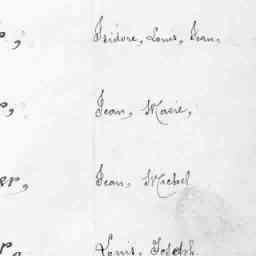 r, Isidore, Louis, Jean,
r, Jean, Marie,
er, Jean, Michel
r, Louis, Joseph.